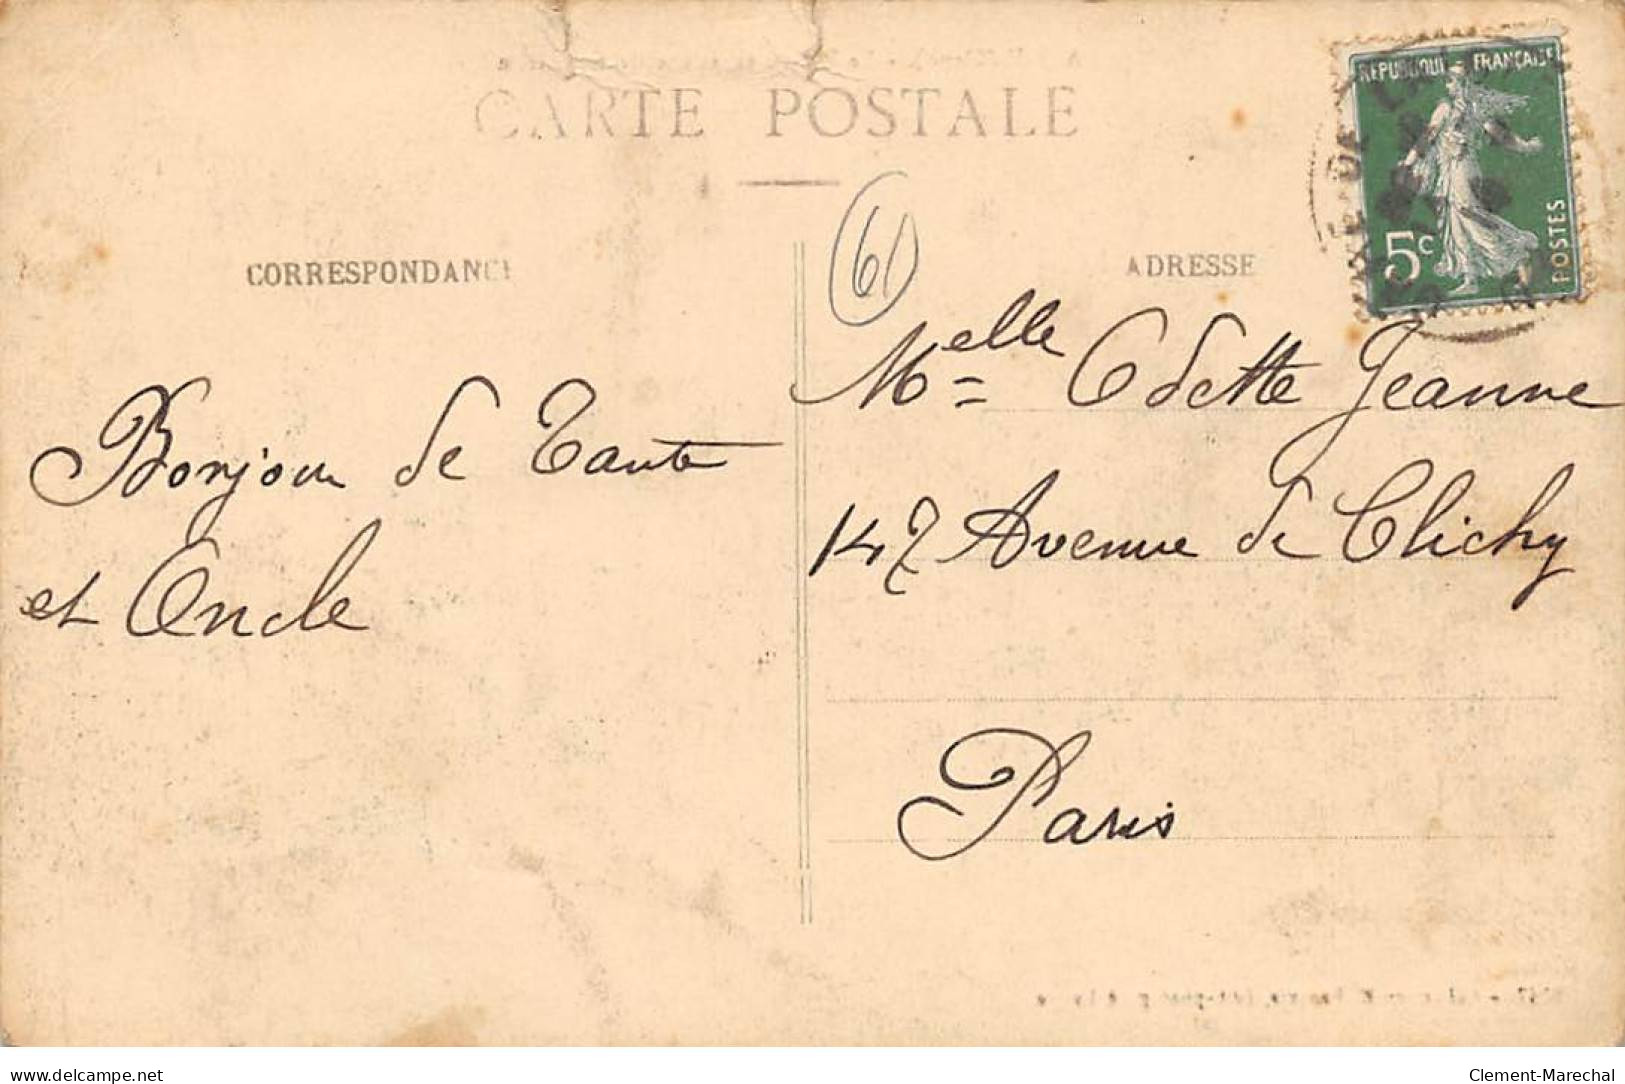 CARTE POSTALE
CORRESPONDANCE
61
ADRESSE
REPUBLIQUE FRANÇAISE
5c
POSTES
Bonjour de Tante
et Oncle
Melle Odette Jeanne
147 Avenue de Clichy
Paris
www.delcampe.net
Clement-Marechal